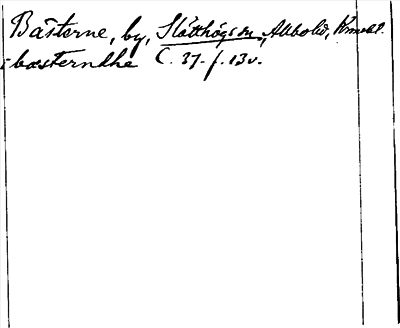 Båsterne, by, Slätthögs sn., Allbo hd, Kronob l.
i basterndhe C. 37. f. 13v.